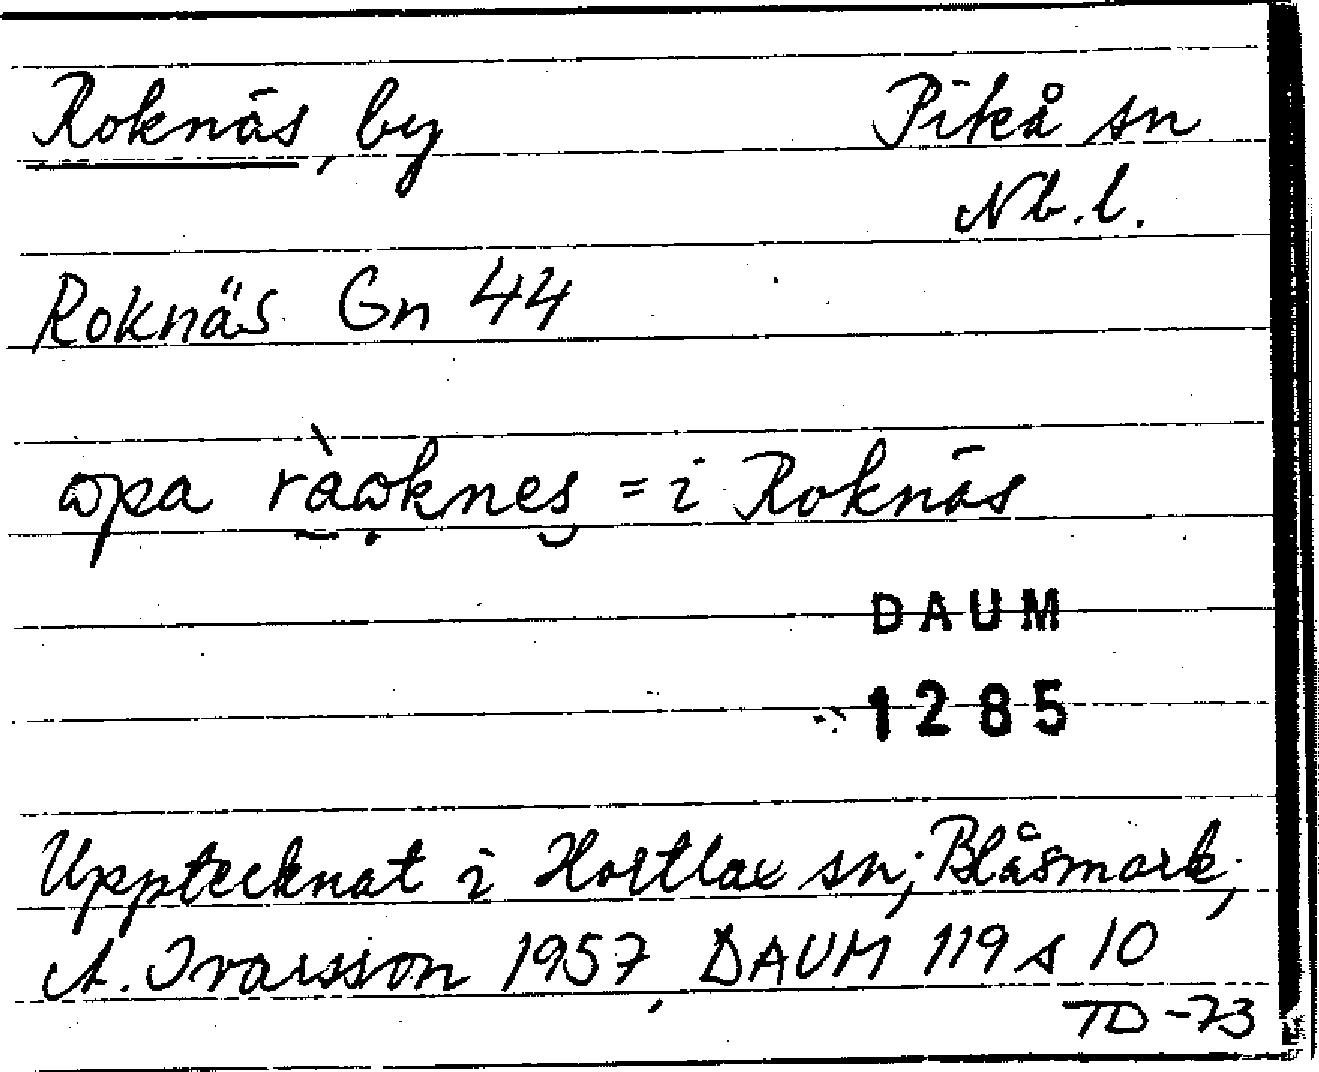 Roknäs, by Piteå sn
Nb.l.
Roknäs Gn 44
ɷpa ràɷknes = i Roknäs
DAUM
1285
Upptecknat i Hortlax sn; Blåsmark;
A. Ivarsson 1957, DAUM 119 s 10
TD-73